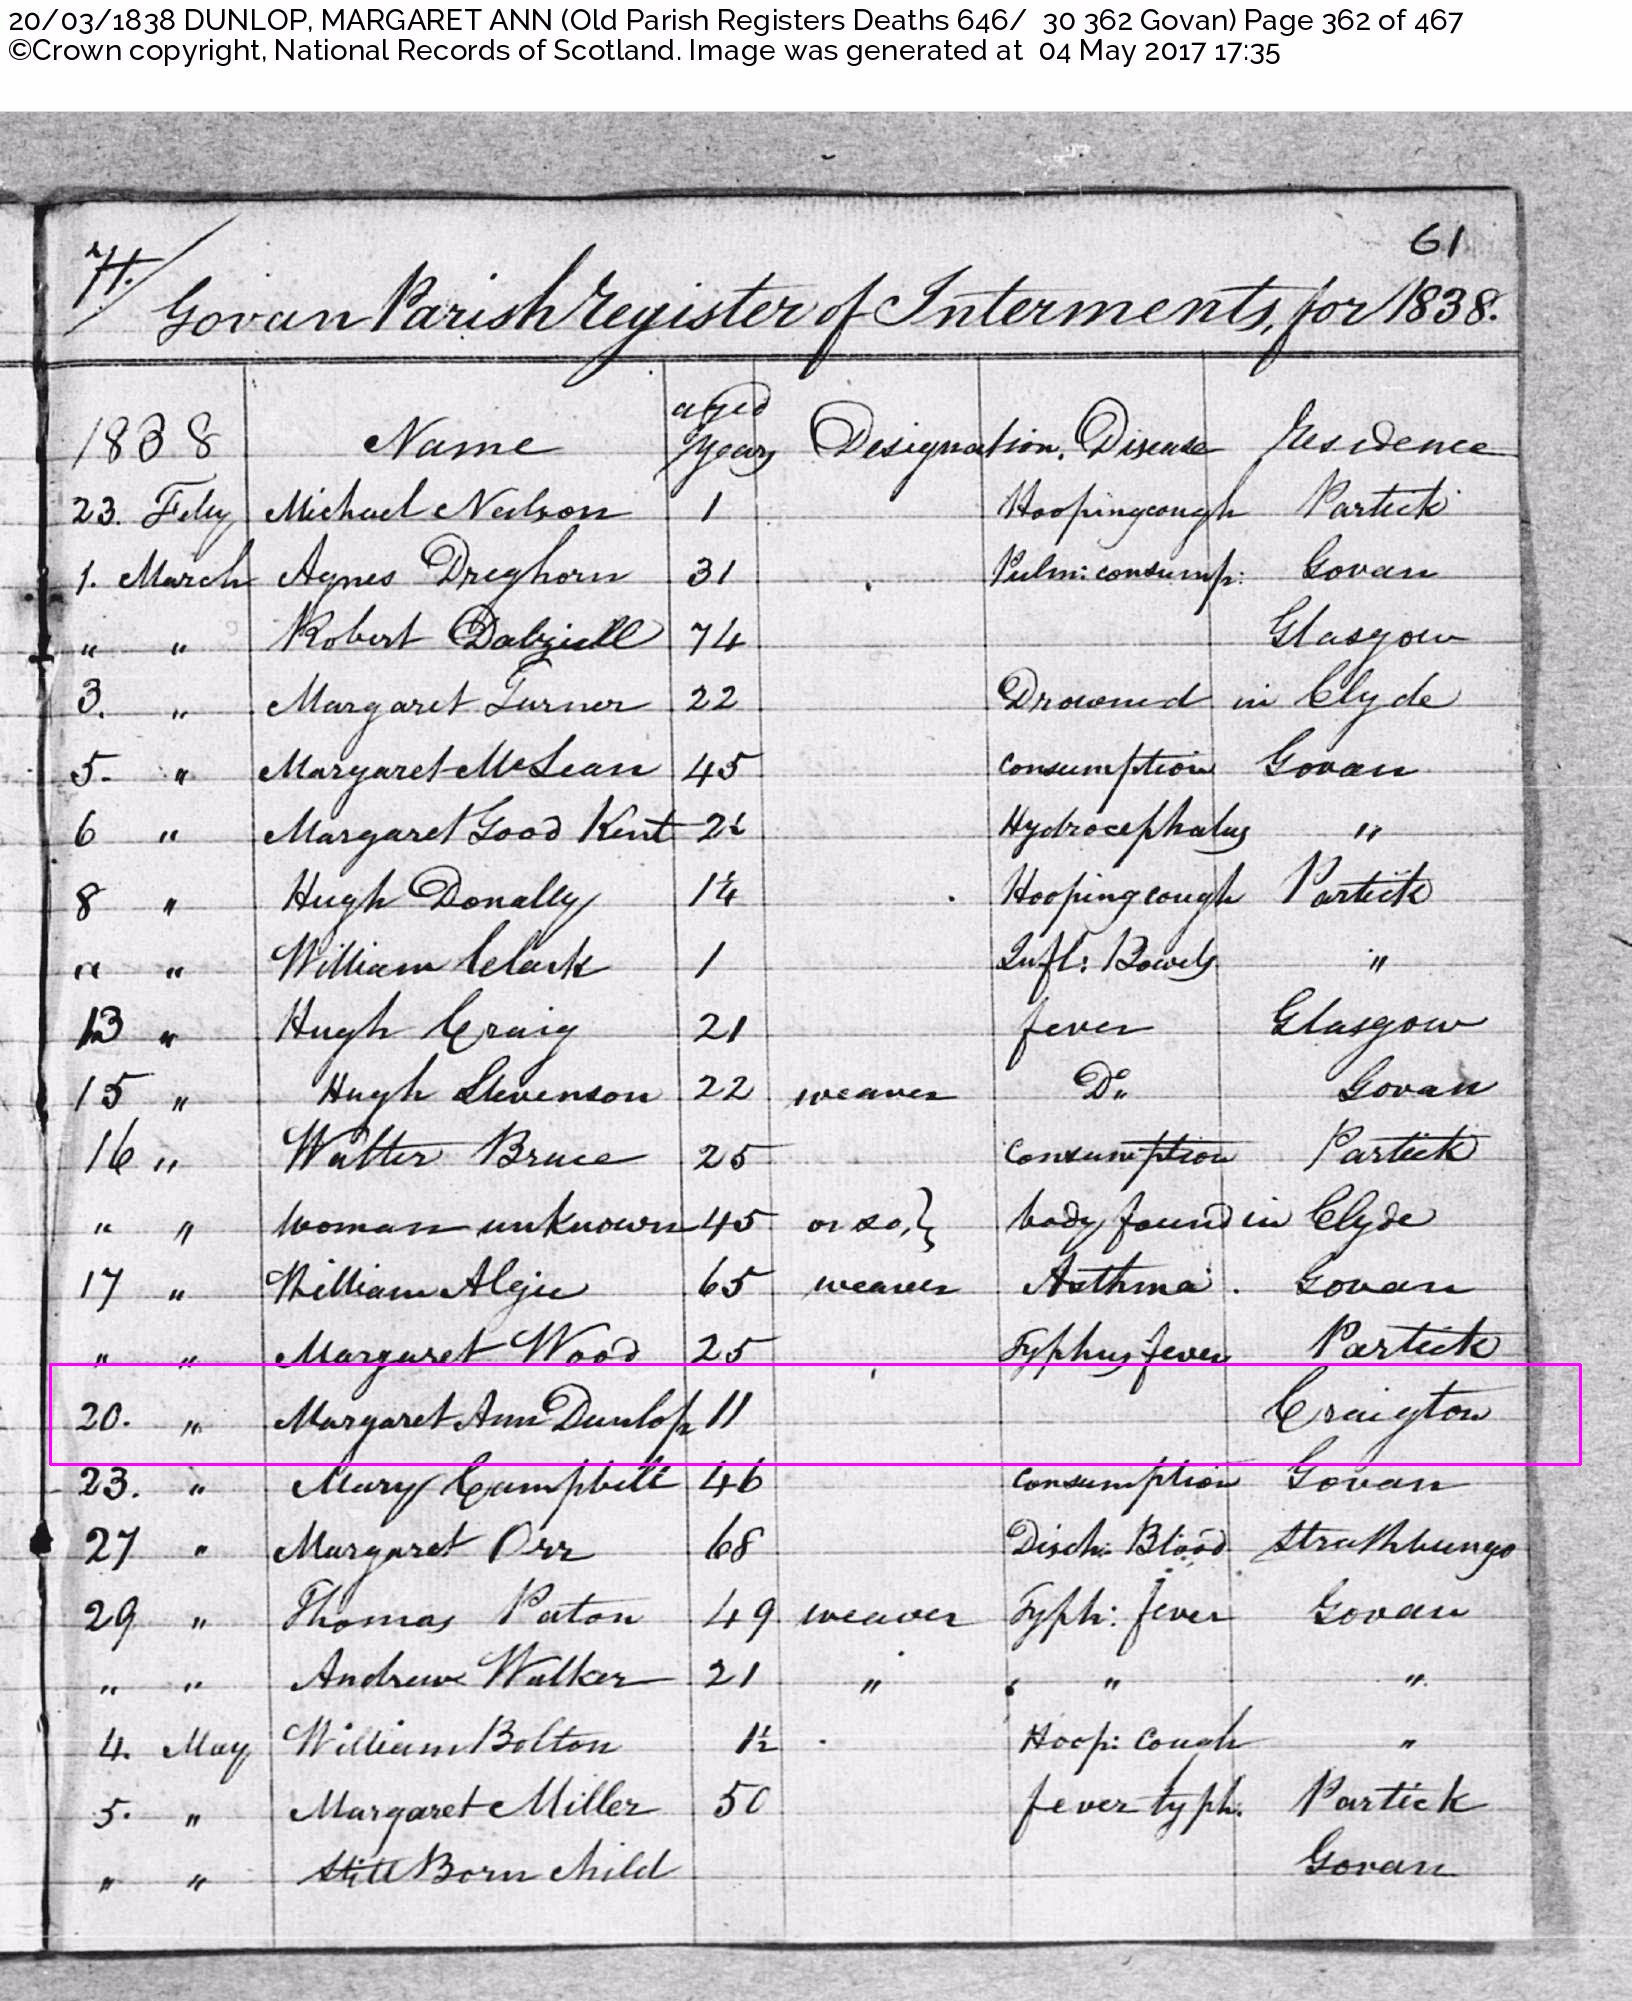 20/03/1838 DUNLOP, MARGARET ANN (Old Parish Registers Deaths 646/ 30 362 Govan) Page 362 of 467
©Crown copyright, National Records of Scotland. Image was generated at 04 May 2017 17:35
61
Govan Parish Register of Interments, for 1838.
1838 Name aged years Designation. Disease Residence
23. Feby Michael Neilson 1 Hoopingcough Partick
1. March Agnes Dreghorn 31 Pulm: consump: Govan
" " Robert Dalziell 74 Glasgow
3. " Margaret Turner 22 Drowned in Clyde
5. " Margaret McLean 45 consumption Govan
6 " Margaret Good Kent 2½ Hydrocephalus "
8 " Hugh Donally 1¼ Hooping cough Partick
" " William Clark 1 Infl: Bowels "
13 " Hugh Craig 21 fever Glasgow
15 " Hugh Stevenson 22 weaver Do. Govan
16 " Walter Bruce 25 consumption Partick
" " woman unknown 45 or so,} body found in Clyde
17 " William Algie 65 weaver Asthma. Govan
" " Margaret Wood 25 Typhus fever Partick
20. " Margaret Ann Dunlop 11 Craigton
23. " Mary Campbell 46 consumption Govan
27 " Margaret Orr 68 Disch: Blood Strathbungo
29 " Thomas Paton 49 weaver Typh: fever Govan
" " Andrew Walker 21 " " "
4. May William Bolton 1½ Hoop: Cough "
5. " Margaret Miller 50 fever typh. Partick
" " Still Born Child Govan